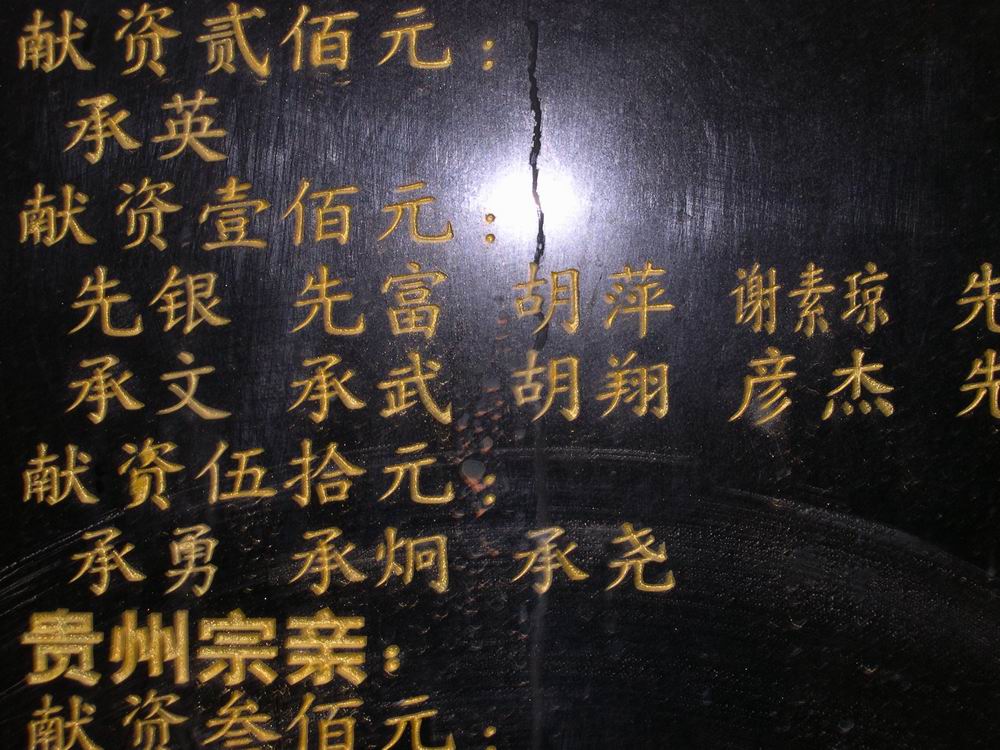 献资贰佰元：
承英
献资壹佰元：
先银 先富 胡萍 谢素琼 先
承文 承武 胡翔 彦杰 先
献资伍拾元：
承勇 承炯 承尧
贵州宗亲：
献资叁佰元：